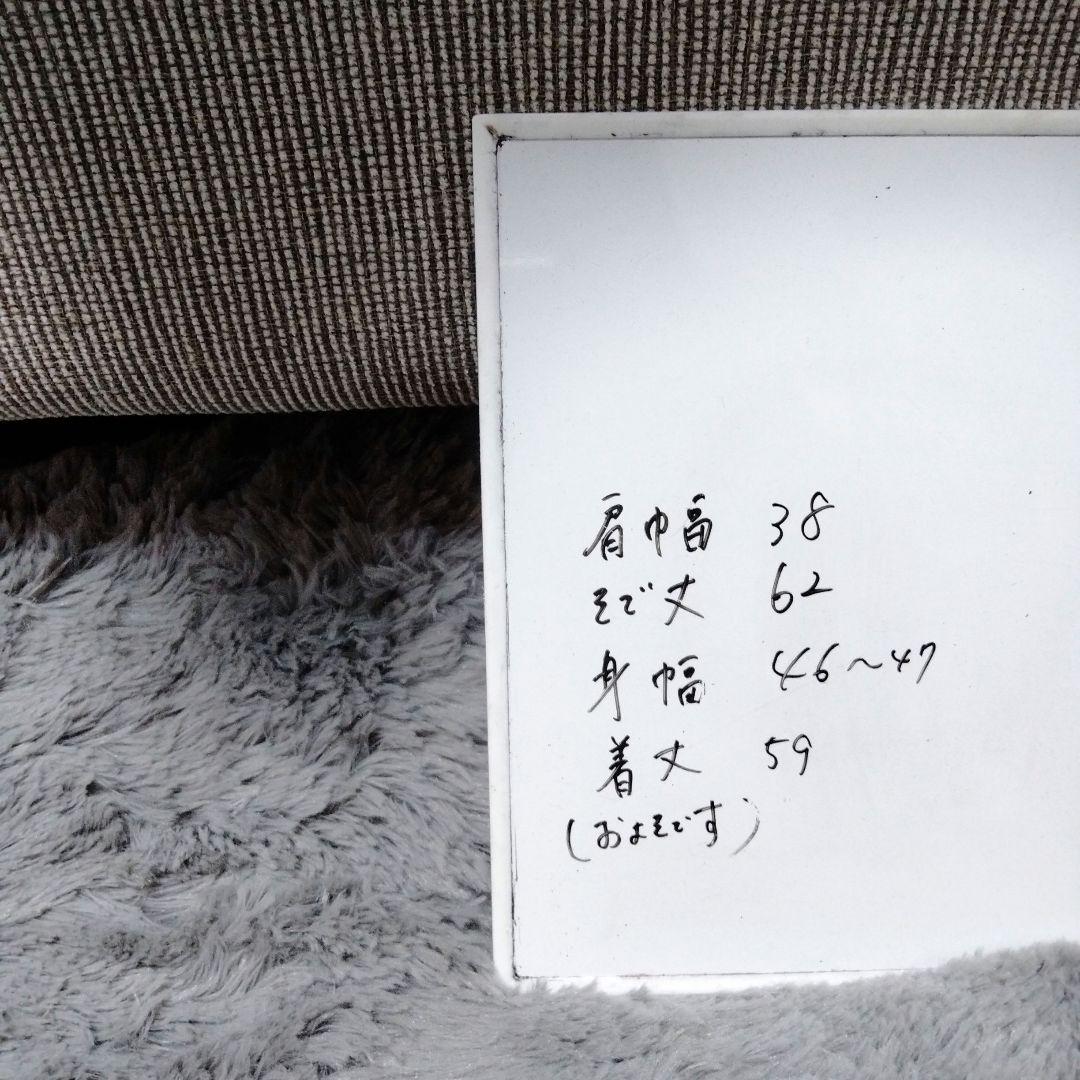 肩巾幅 38
そで丈 62
身幅 46〜47
着丈 59
(およそです)